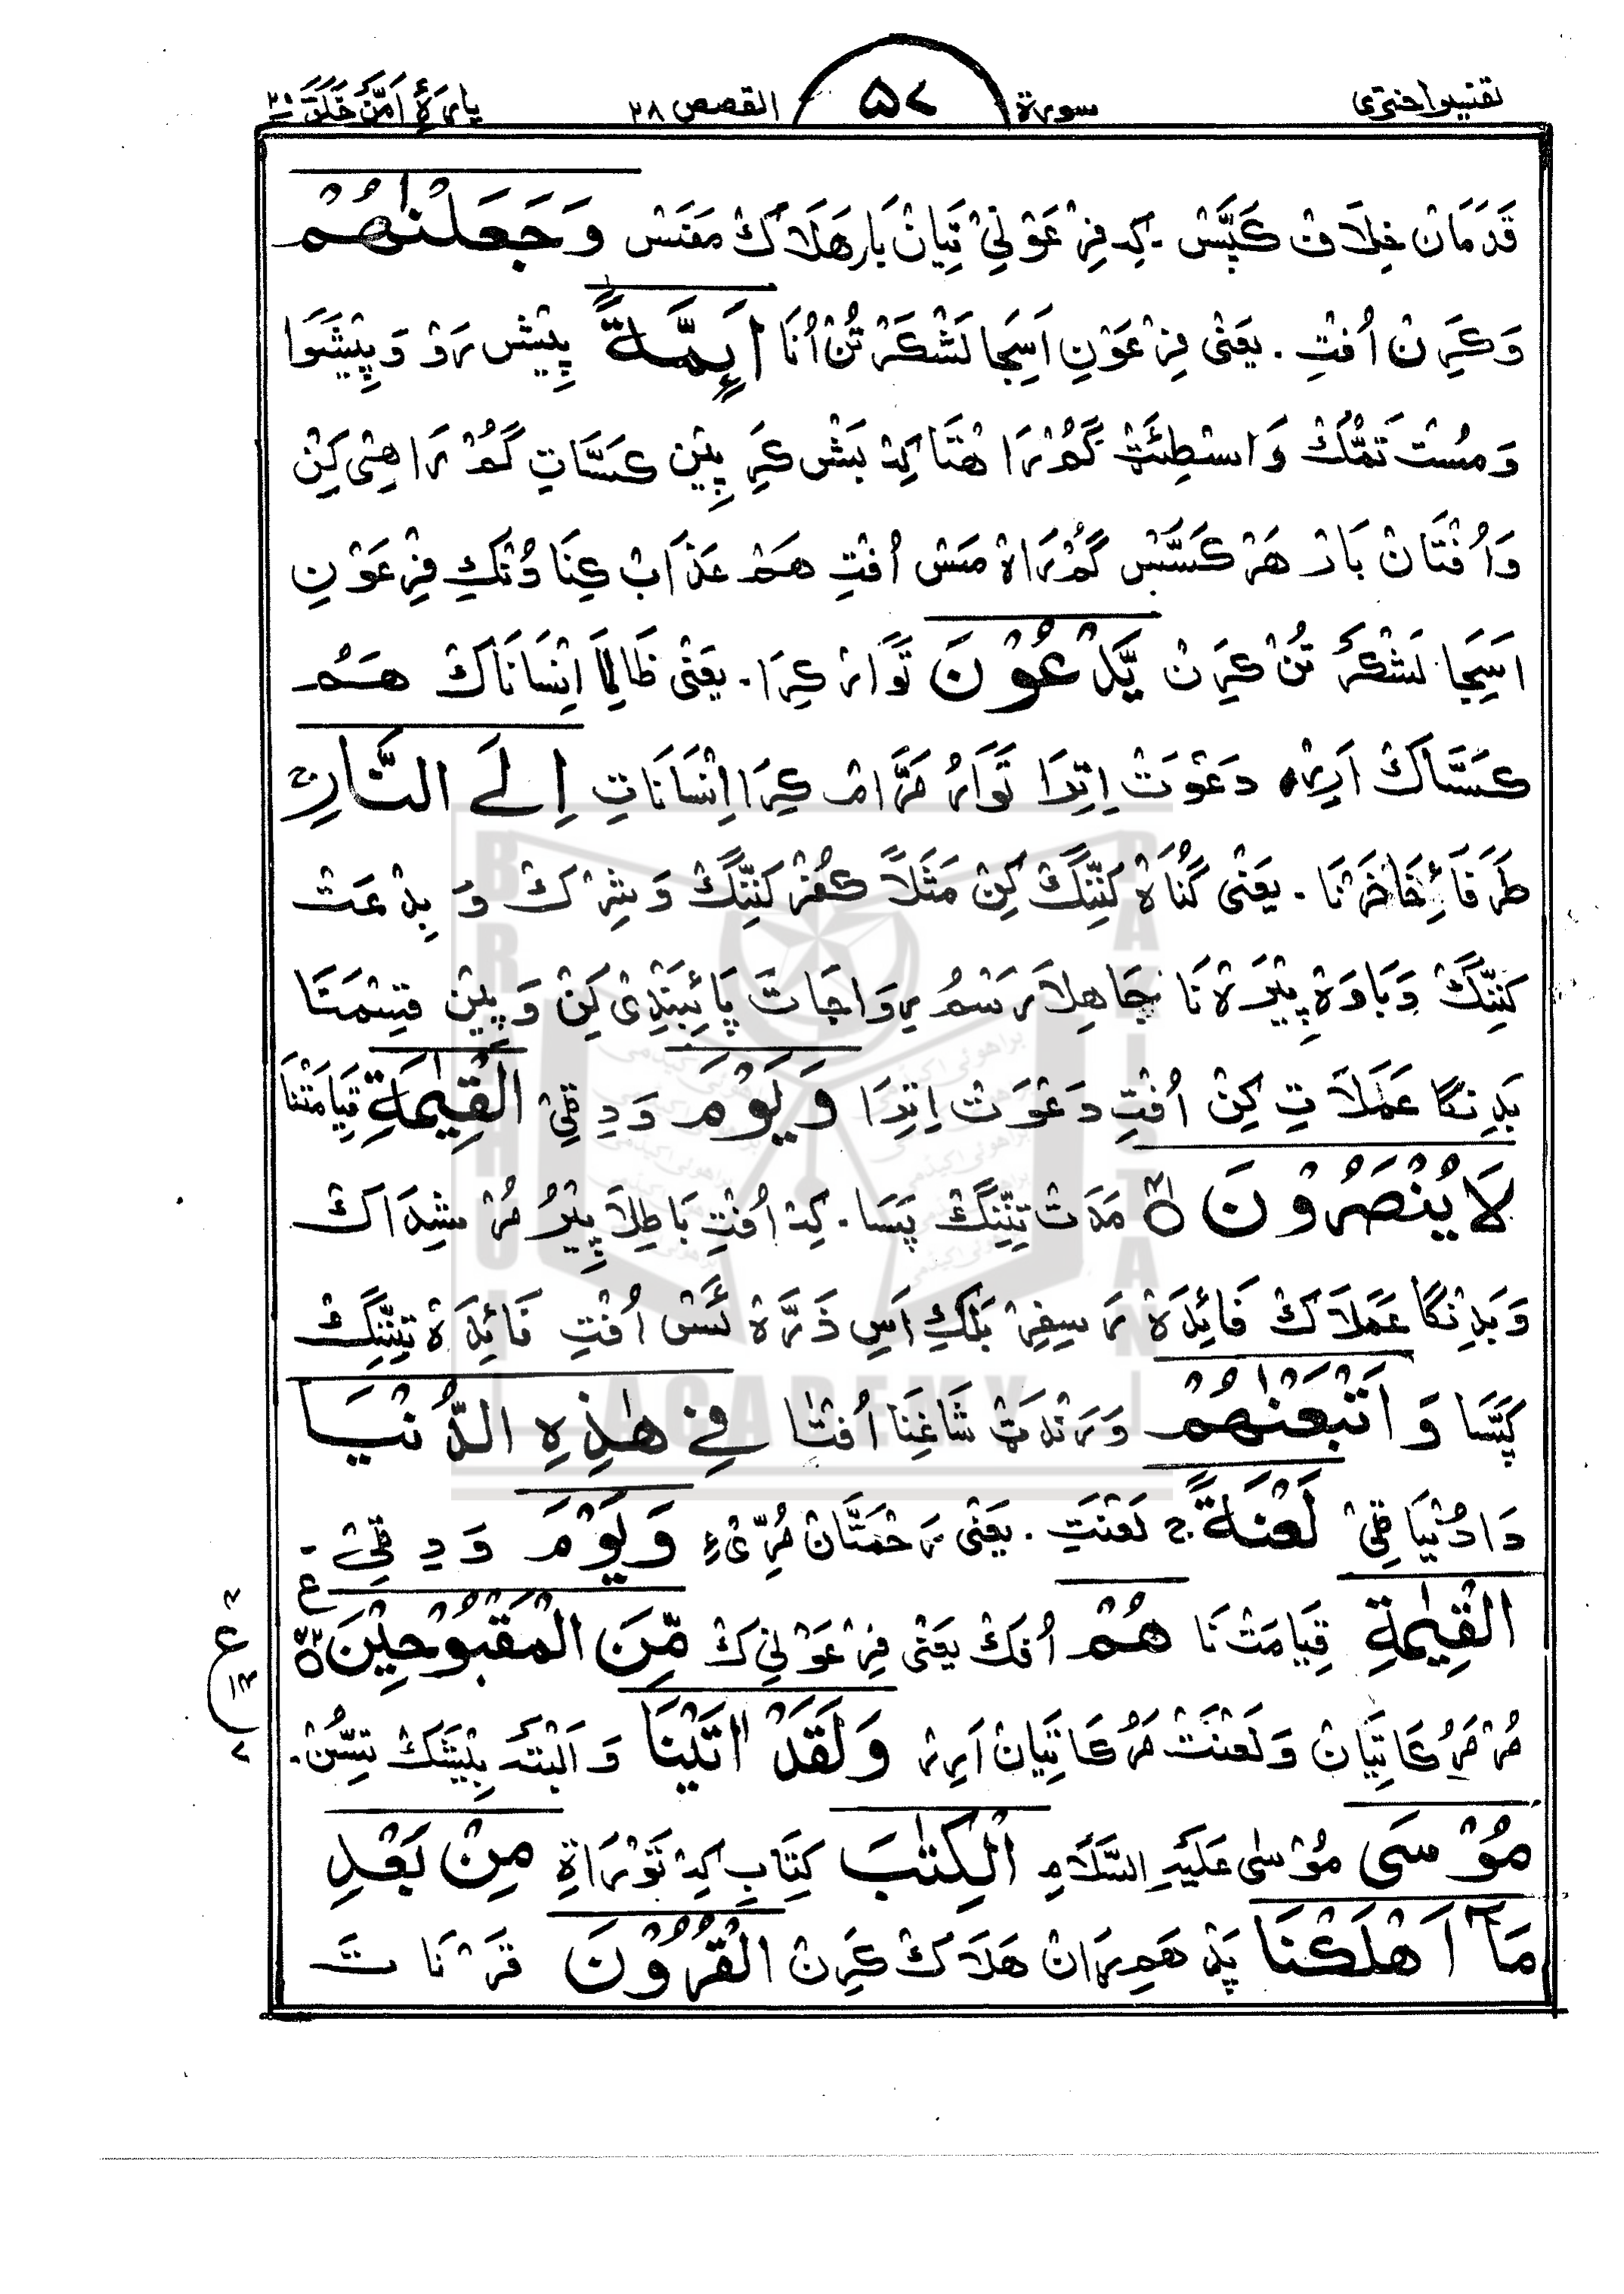 تفسیر اختری سورة ۵۷ القصص ۲۸ پارہٴ اَمَّنْ خَلَقَ ۲۰
قَدَمَان خِلَاف کَپَّس . کِہ فِرْعَوْنِیْ تِیَانْ بَار هَلَاکْ مَفَسْ وَجَعَلْنٰهُمْ
وَکَرِنْ اُفتِ . یَعْنٰی فِرْعَوْنِ اَسِجَا لَشْکَرْ تُنْ اُنَا اَئِمَّةً پِیْش رَوْ وَ پِیْشَوَا
وَمُسْت تَمُّکْ وَاسْطِئَتْ گُمْرَا هْتَا کِہ بَشْ کَرِ پِیْن کَسَّاتِ گُمْرَاهِیْ کِنْ
وَاُفْتَانْ بَار هَرْ کَسَّسْ گُمْرَاهْ مَسْ اُفْتِ هَمْ عَذَابْ کِنَا دُنْکِ فِرْعَوْنِ
اَسِجَا لَشْکَرْ تُنْ کَرِنْ یَّدْعُوْنَ تَوَار کِرَا . یَعْنٰی ظَالِمَا اِنْسَانَاکْ هَمْ
کَسَّاکْ اَرِیرْ دَعْوَتْ اِتِرَا تَوَار مَرَّام کِرَا اِنْسَانَاتِ اِلَی النَّارِ ج
طَرَفَاِ خَاخَرْنَا . یَعْنٰی گُنَاہْ کَنِنِّگْ کِنْ مَثَلاً کُفْرْ کَنِنِّگْ وَشِرْکْ وَ بِدْعَتْ
کَنِنِّگْ وَبَاوَہْ پِیْرَہْ نَا جَاهِلَا رَسْمُ رِوَاجَاتَ پَائِبَنْدِیْ کِنْ وَ پِیْن قِسْمَنَا
بَدِنْگَا عَمَلَاتِ کِنْ اُفْتِ دَعْوَتْ اِتِرَا وَیَوْمَ وَدِ قِیْ الْقِیٰمَةِ قِیَامَتْنَا
لَا یُنْصَرُوْنَ ۴۱ مَدَتْ تِنِنِّگْ پَسَا . کِہ اُفْتِ بَاطِلَا پِیْرُ مُرْشِدَاکْ
وَبَدِنْگَا عَمَلَاکْ فَائِدَہْ رَسِفِرْ بَلْکِ اَسِ ذَرَّہْ ئَسْ اُفْتِ فَائِدَہْ تِنِنِّگْ
کَپَّسَا وَاَتْبَعْنٰهُمْ وَرَنْدَتْ شَاغِنَا اُفْتَا فِیْ هٰذِهِ الدُّنْیَا
دَادُنْیَا قِیْ لَعْنَةً ج لَعْنَتِ . یَعْنٰی رَحْمَتَانْ مُرِّیْءِ وَیَوْمَ وَدِ قِیْ
الْقِیٰمَةِ قِیَامَتْنَا هُمْ اُفکْ یَعْنٰی فِرْعَوْنِیْکْ مِّنَ الْمَقْبُوْحِیْنَ ۴۲ ع
مُرْمَرُکَا تِیَانْ وَلَعْنَتْ مَرُکَا تِیَانْ اَرِیرْ وَلَقَدْ اٰتَیْنَا وَالْبَتَہ بِیْشَکْ تِسُّنْ .
مُوْسَی مُوْسٰی عَلَیْهِ السَّلَامِ الْکِتٰبَ کِتَابِ کِہ تَوْرَاةِ مِنْ بَعْدِ
مَآ اَهْلَکْنَا پَدْ هَمِرَانْ هَلَاکْ کَرِنْ الْقُرُوْنَ قَرْنَاتَ
ع ۱۴ ۷